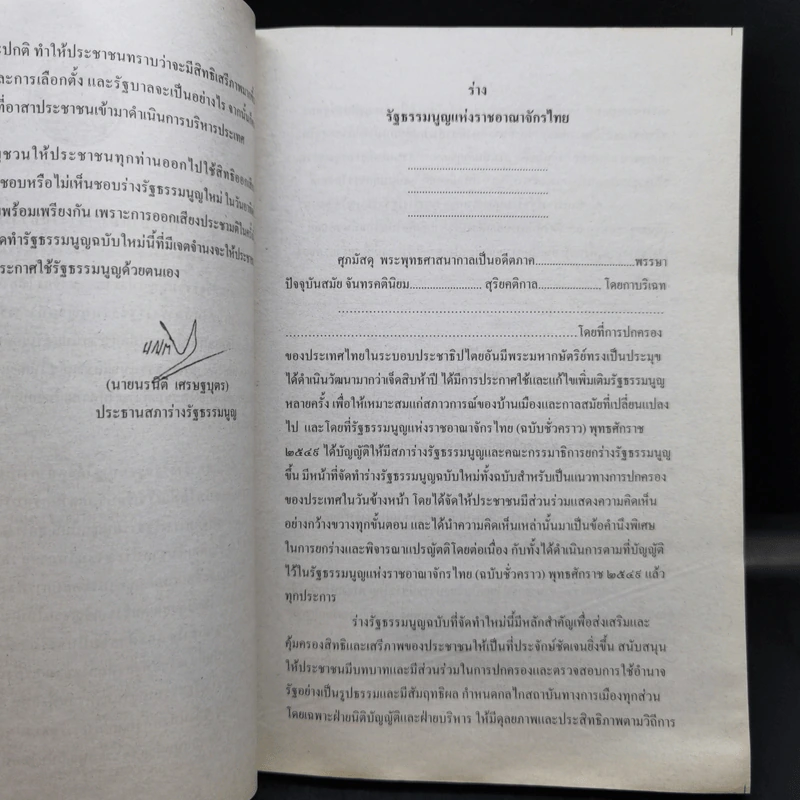 ะปกติ ทำให้ประชาชนทราบว่าจะมีสิทธิเสรีภาพมาก
ละการเลือกตั้ง และรัฐบาลจะเป็นอย่างไร จากนั้น
ที่อาสาประชาชนเข้ามาดำเนินการบริหารประเทศ
ญชวนให้ประชาชนทุกท่านออกไปใช้สิทธิออก
ชอบหรือไม่เห็นชอบร่างรัฐธรรมนูญใหม่ ในวัน
พร้อมเพรียงกัน เพราะการออกเสียงประชามติใน
ดทำรัฐธรรมนูญฉบับใหม่นี้ที่มีเจตจำนงจะให้ประชา
ระกาศใช้รัฐธรรมนูญด้วยตนเอง
(นายนรนิติ เศรษฐบุตร)
ประธานสภาร่างรัฐธรรมนูญ
ร่าง
รัฐธรรมนูญแห่งราชอาณาจักรไทย
........................................
........................................
........................................
ศุภมัสดุ พระพุทธศาสนากาลเป็นอดีตภาค............................พรรษา
ปัจจุบันสมัย จันทรคตินิยม.................... สุริยคติกาล.................. โดยกาบริเฉท
....................................................................................
....................................................................................โดยที่การปกครอง
ของประเทศไทยในระบอบประชาธิปไตยอันมีพระมหากษัตริย์ทรงเป็นประมุข
ได้ดำเนินวัฒนามากว่าเจ็ดสิบห้าปี ได้มีการประกาศใช้และแก้ไขเพิ่มเติมรัฐธรรมนูญ
หลายครั้ง เพื่อให้เหมาะสมแก่สภาวการณ์ของบ้านเมืองและกาลสมัยที่เปลี่ยนแปลง
ไป และโดยที่รัฐธรรมนูญแห่งราชอาณาจักรไทย (ฉบับชั่วคราว) พุทธศักราช
๒๕๔๙ ได้บัญญัติให้มีสภาร่างรัฐธรรมนูญและคณะกรรมาธิการยกร่างรัฐธรรมนูญ
ขึ้น มีหน้าที่จัดทำร่างรัฐธรรมนูญฉบับใหม่ทั้งฉบับสำหรับเป็นแนวทางการปกครอง
ของประเทศในวันข้างหน้า โดยได้จัดให้ประชาชนมีส่วนร่วมแสดงความคิดเห็น
อย่างกว้างขวางทุกขั้นตอน และได้นำความคิดเห็นเหล่านั้นมาเป็นข้อคำนึงพิเศษ
ในการยกร่างและพิจารณาแปรญัตติโดยต่อเนื่อง กับทั้งได้ดำเนินการตามที่บัญญัติ
ไว้ในรัฐธรรมนูญแห่งราชอาณาจักรไทย (ฉบับชั่วคราว) พุทธศักราช ๒๕๔๙ แล้ว
ทุกประการ
ร่างรัฐธรรมนูญฉบับที่จัดทำใหม่นี้มีหลักสำคัญเพื่อส่งเสริมและ
คุ้มครองสิทธิและเสรีภาพของประชาชนให้เป็นที่ประจักษ์ชัดเจนยิ่งขึ้น สนับสนุน
ให้ประชาชนมีบทบาทและมีส่วนร่วมในการปกครองและตรวจสอบการใช้อำนาจ
รัฐอย่างเป็นรูปธรรมและมีสัมฤทธิผล กำหนดกลไกสถาบันทางการเมืองทุกส่วน
โดยเฉพาะฝ่ายนิติบัญญัติและฝ่ายบริหาร ให้มีดุลยภาพและประสิทธิภาพตามวิถีการ